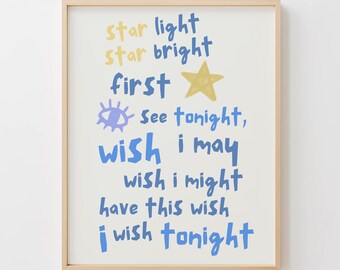 star light
star bright
first
see tonight,
wish i may
wish i might
have this wish
i wish tonight